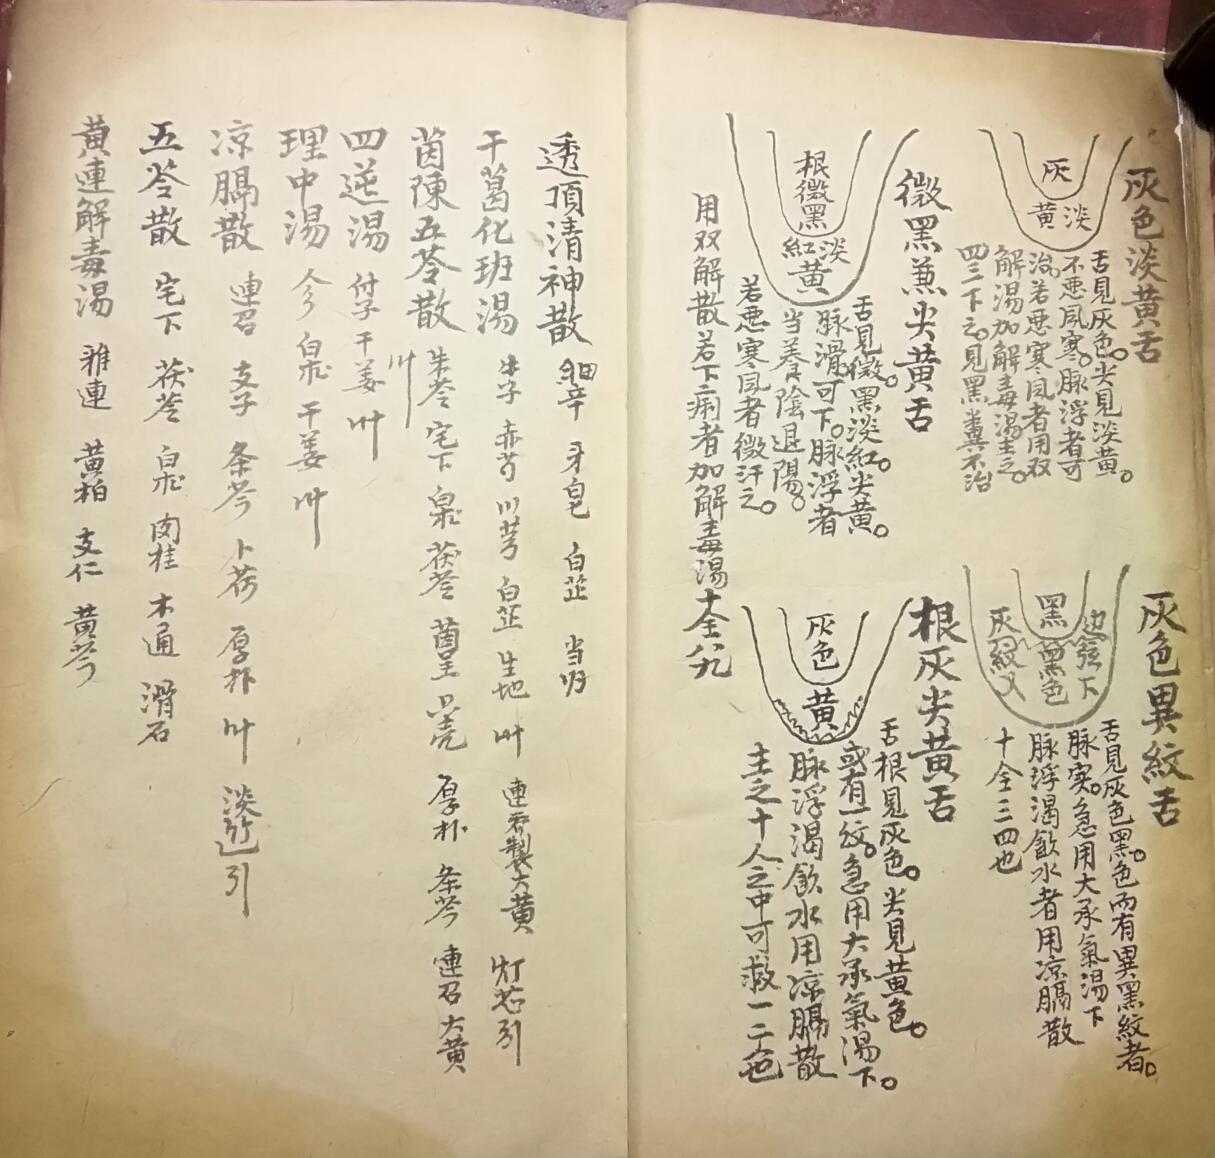 灰色淡黃舌
灰
淡黃
舌見灰色。尖見淡黃。
不悪風寒。脉浮者可
治。若悪寒風者用双
解湯加解毒湯主之。
四三下之。見黑糞不治
微黑兼尖黃舌
根微黑
淡紅
黃
舌見微黑淡紅。尖黃。
脉滑可下。脉浮者
當養陰退陽。
若悪寒風者微汗之。
用双解散若下痢者加解毒湯十全
灰色異紋舌
黑
邊弦下
黑色
灰紋又
舌見灰色黑。色而有異黑紋者。
脉实。急用大承氣湯下
脉浮渴飲水者用凉膈散
十全三四也
根灰尖黃舌
灰色
黃
舌根見灰色。尖見黃色。
或有一紋。急用大承氣湯下。
脉浮渴飲水用凉膈散
主之十人之中可救一二也
透頂清神散 細辛 牙皂 白芷 当归
干葛化班湯 牛子 赤芍 川芎 白芷 生地 卄 連召 製大黃 灯芯引
茵陳五苓散 朱苓 宅下 茯苓 厚朴 条芩 連召 大黃
四逆湯 付子 干姜 卄
理中湯 干姜 卄
凉膈散 連召 支子 条芩 卜荷 厚朴 卄 淡竹引
五苓散 宅下 茯苓 肉桂 木通 滑石
黃連解毒湯 雅連 黃柏 支仁 黃芩